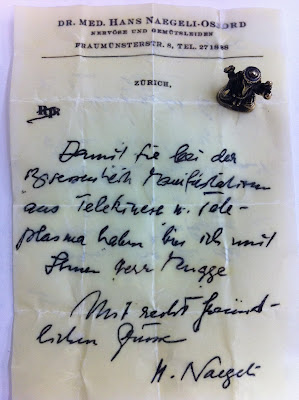 DR. MED. HANS NAEGELI-OSJORD
NERVÖSE UND GEMÜTSLEIDEN
FRAUMÜNSTERSTR. 8, TEL. 27 18 88
ZÜRICH,
Rp.
Damit Sie bei der
Manifestation
aus Telekinese u. Tele-
plasma haben bin ich mit
Ihnen Herr Mugge
Mit recht freund-
lichen Grüssen
H. Naegeli